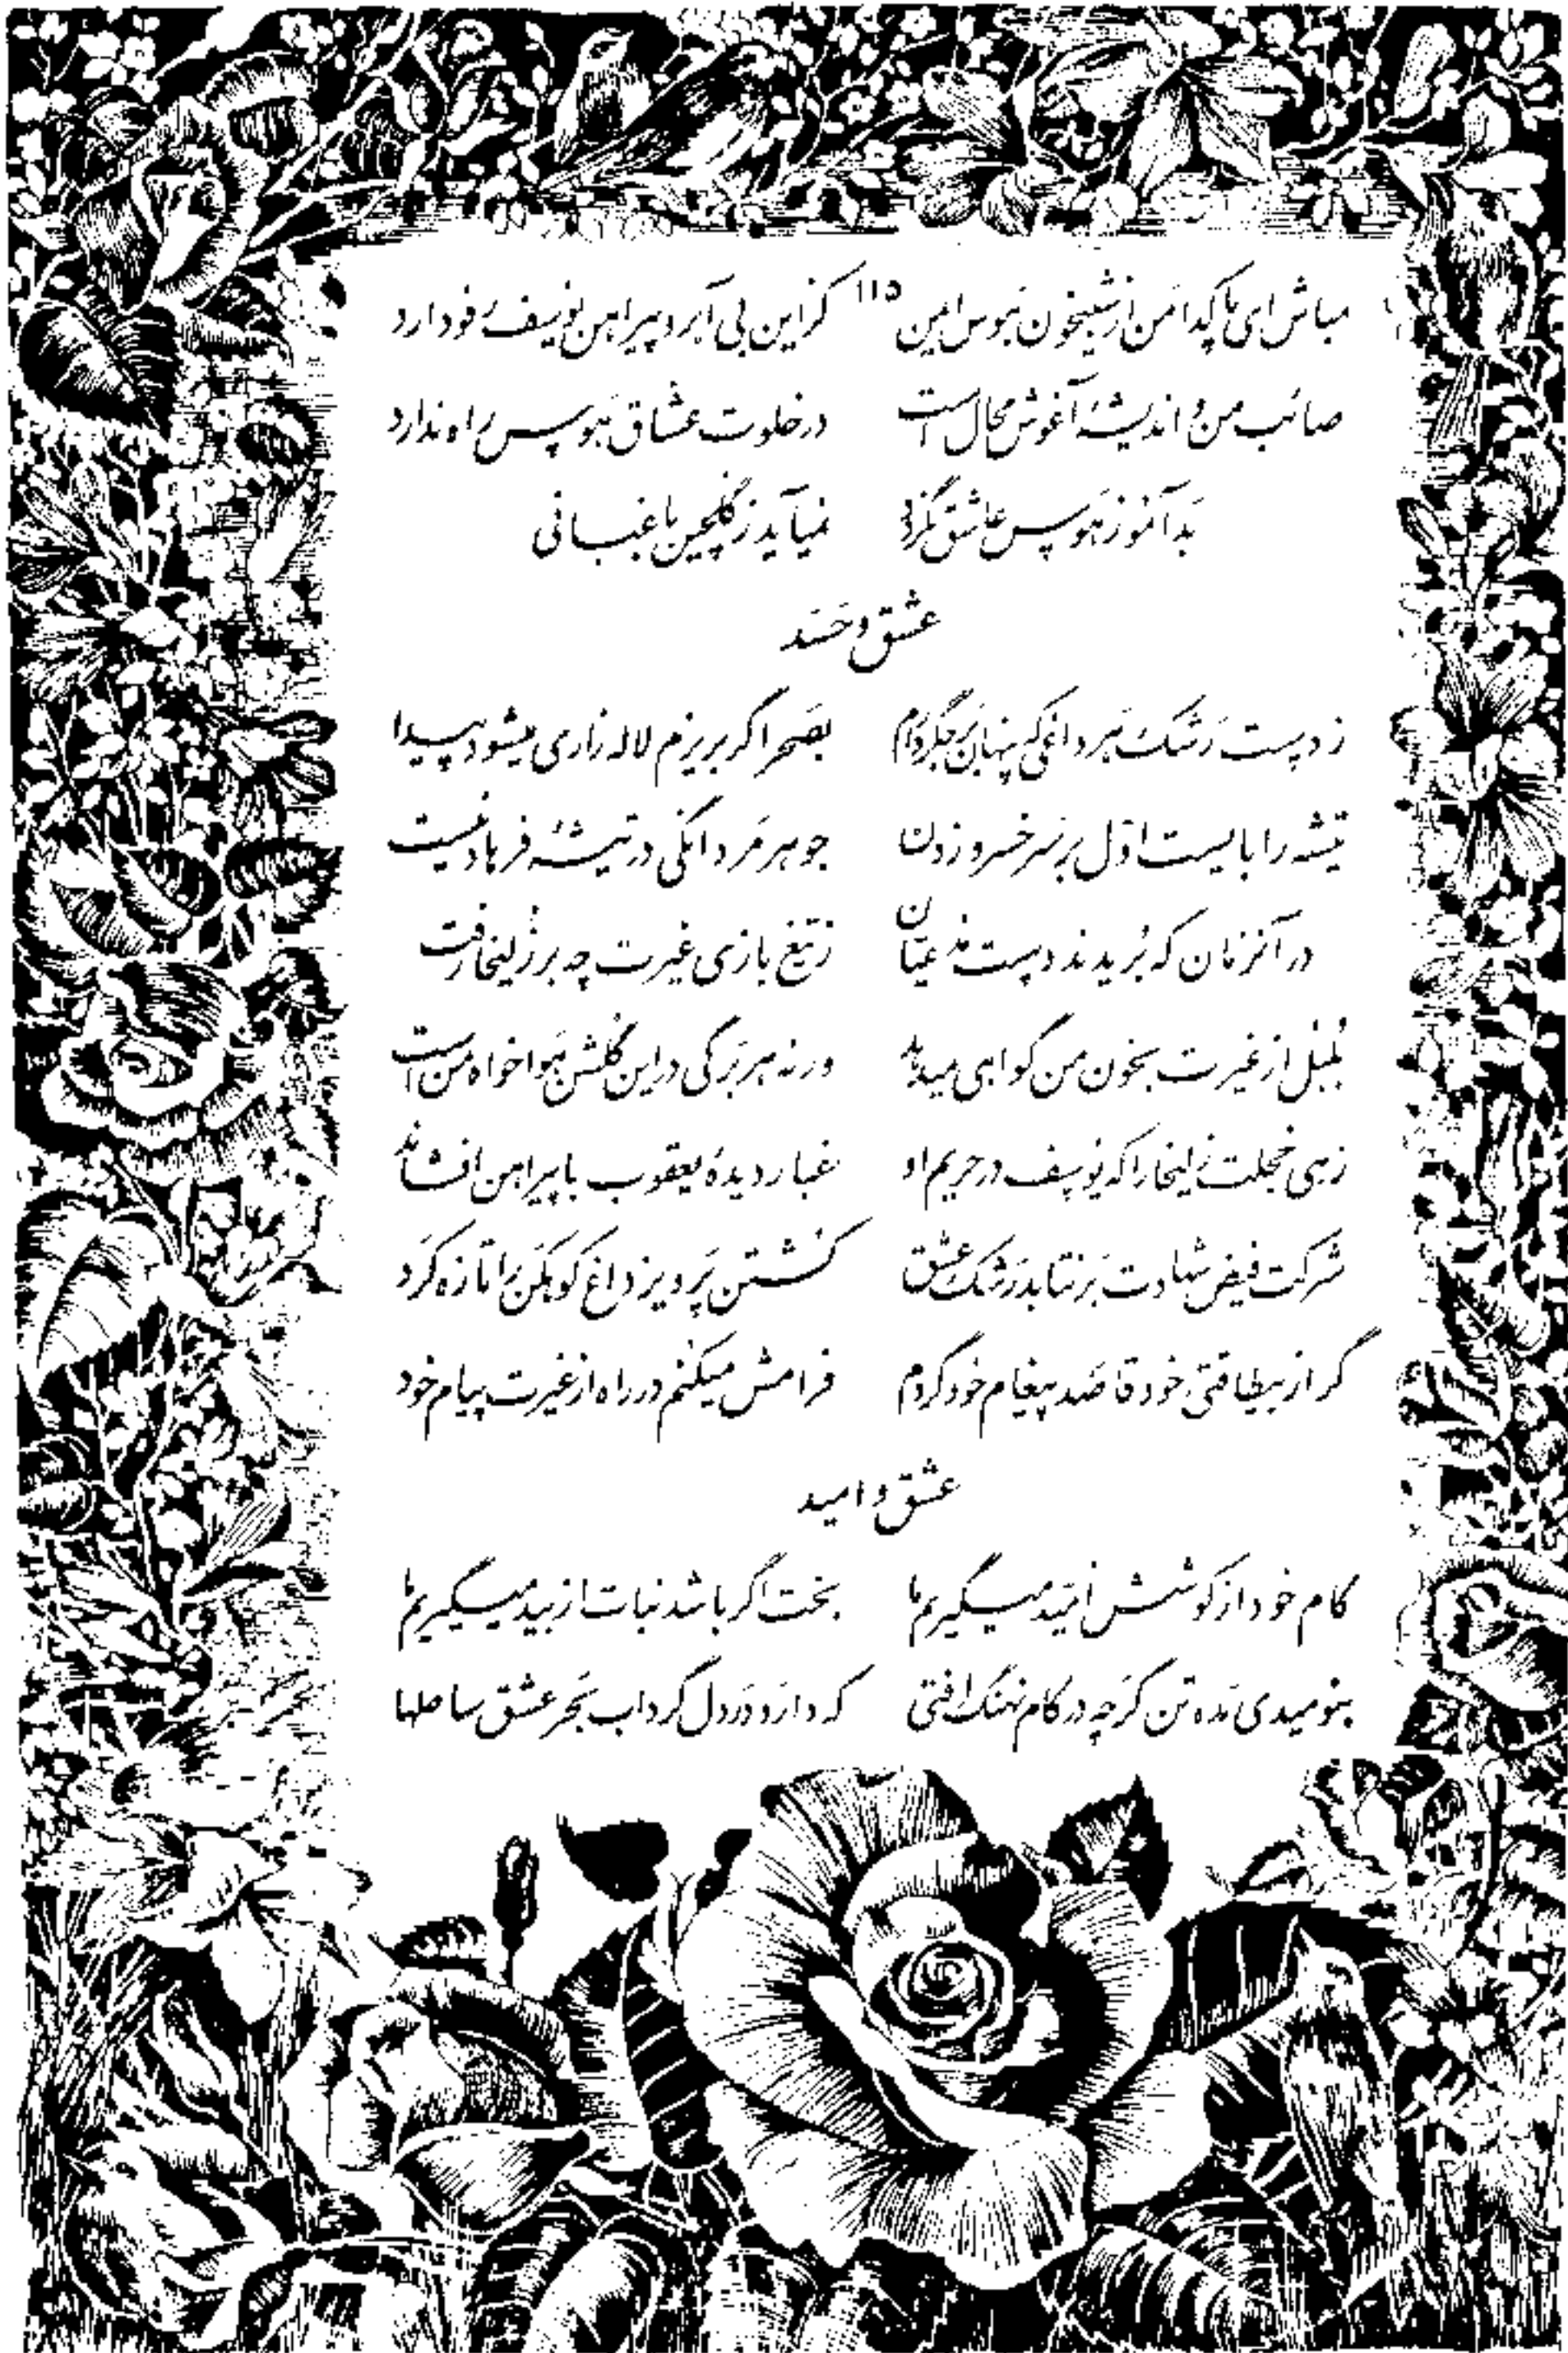 ۱۱۵
مباش ای پاکدامن از شبیخون هوس ایمن کزاین بی آبرو پیراهن یوسف رفو دارد
صائب من و اندیشهٔ آغوش محال است در خلوت عشاق هوس راه ندارد
بدآموز هوس عاشق نگردد نمیآید ز گلچین باغبانی
عشق و حسد
ز دست رشک هر داغی که پنهان بر جگر دارم بصحرا گر بریزم لاله زاری میشود پیدا
تیشه را بایست اول بر سر خسرو زدن جوهر مردانگی در تیشهٔ فرهاد نیست
در آنزمان که بریدند دست مدعیان ز تیغ بازی غیرت چه بر زلیخا رفت
بلبل از غیرت بخون من گواهی میدهد ورنه هر برگی در این گلشن هواخواه من است
زهی خجلت زلیخا را که یوسف در حریم او غبار دیدهٔ یعقوب با پیراهن افشاند
شرکت فیض شهادت بر نتابد رشک عشق کشتن پرویز داغ کوهکن را تازه کرد
گر از بیطاقتی خود قاصد پیغام خود گردم فرامش میکنم در راه از غیرت پیام خود
عشق و امید
کام خود از کوشش امید میگیریم ما بخت اگر باشد نبات از بید میگیریم ما
بنومیدی مده تن گرچه در کام نهنگ افتی که دارد در دل گرداب بحر عشق ساحلها